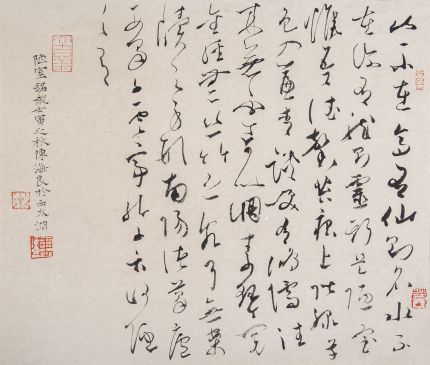 山不在高有仙則名水不
在深有龍則靈斯是陋室
惟吾德馨苔痕上階綠草
色入簾青談笑有鴻儒往
來無白丁可以調素琴閱
金經無絲竹之亂耳無案
牘之勞形南陽諸葛廬
西蜀子雲亭孔子云何陋
之有
陋室銘歲壬寅之秋陳海良於西太湖